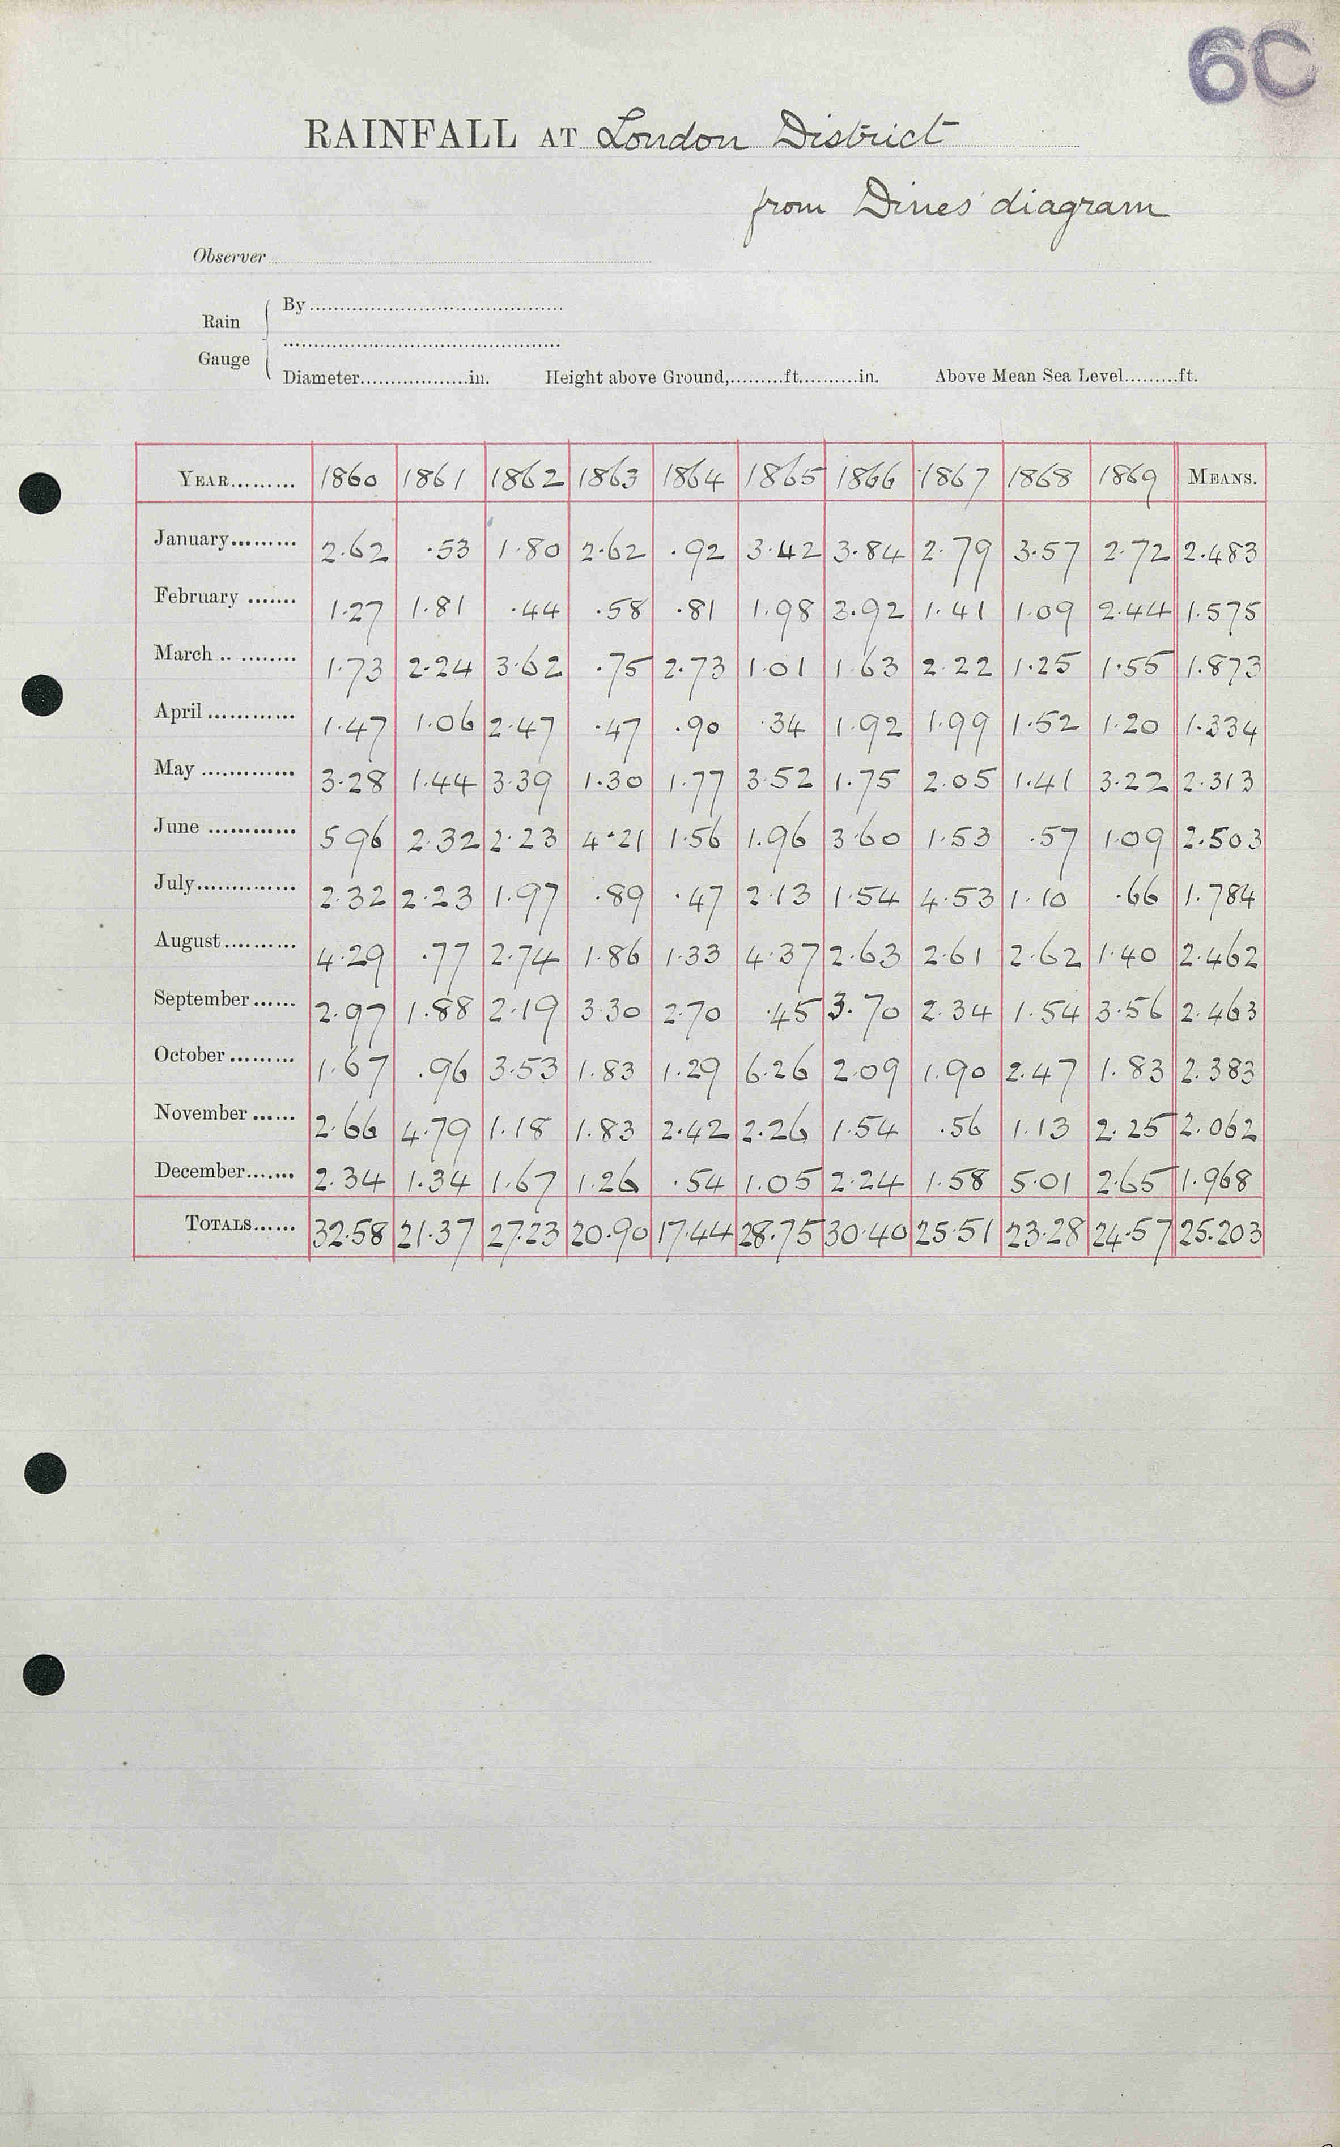 6C
RAINFALL AT London District
from Dines' diagram
Observer
Rain Gauge
By
Diameter in. Height above Ground, ft. in. Above Mean Sea Level ft.
YEAR 1860 1861 1862 1863 1864 1865 1866 1867 1868 1869 MEANS.
January 2.62 .53 1.80 2.62 .92 3.42 3.84 2.79 3.57 2.72 2.483
February 1.27 1.81 .44 .58 .81 1.98 3.92 1.41 1.09 2.44 1.575
March 1.73 2.24 3.62 .75 2.73 1.01 1.63 2.22 1.25 1.55 1.873
April 1.47 1.06 2.47 .47 .90 .34 1.92 1.99 1.52 1.20 1.334
May 3.28 1.44 3.39 1.30 1.77 3.52 1.75 2.05 1.41 3.22 2.313
June 5.96 2.32 2.23 4.21 1.56 1.96 3.60 1.53 .57 1.09 2.503
July 2.32 2.23 1.97 .89 .47 2.13 1.54 4.53 1.10 .66 1.784
August 4.29 .77 2.74 1.86 1.33 4.37 2.63 2.61 2.62 1.40 2.462
September 2.97 1.88 2.19 3.30 2.70 .45 3.70 2.34 1.54 3.56 2.463
October 1.67 .96 3.53 1.83 1.29 6.26 2.09 1.90 2.47 1.83 2.383
November 2.66 4.79 1.18 1.83 2.42 2.26 1.54 .56 1.13 2.25 2.062
December 2.34 1.34 1.67 1.26 .54 1.05 2.24 1.58 5.01 2.65 1.968
TOTALS 32.58 21.37 27.23 20.90 17.44 28.75 30.40 25.51 23.28 24.57 25.203